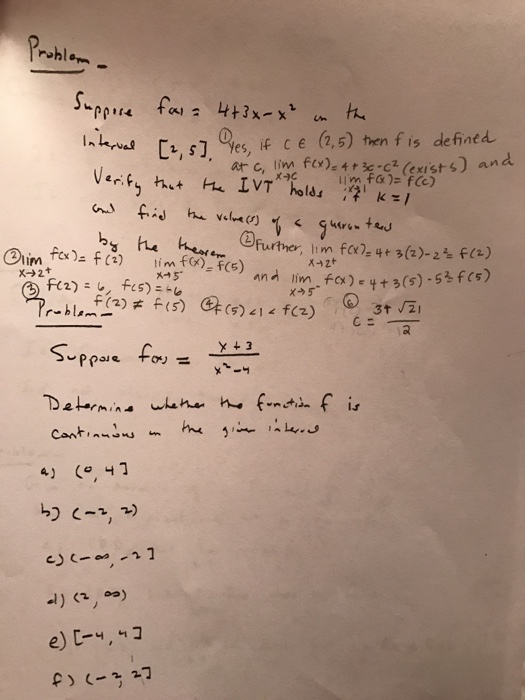 Problem -
Suppose f(x) = 4+3x-x² in the
Interval [2,5]. ① Yes, if c ∈ (2,5) then f is defined
at c, lim x→c f(x) = 4+3c-c² (exists) and
Verify that the IVT holds if k=1 lim f(x) = f(c)
and find the value(s) of c guarantees
by the theorem ② Further, lim x→2⁺ f(x) = 4+3(2)-2² = f(2)
② lim x→2⁺ f(x) = f(2) lim x→5⁻ f(x) = f(5) and lim x→5⁻ f(x) = 4+3(5)-5² = f(5)
③ f(2) = 6, f(5) = -6
f(2) ≠ f(5) ④ f(5) < 1 < f(2) ⑥ c = 3+√21 / 2
Problem -
Suppose f(x) = x+3 / x²-4
Determine whether the function f is
continuous in the given interval
a) (0,4]
b) (-2,2)
c) (-∞,-2]
d) (2,∞)
e) [-4,4]
f) (-2,2]